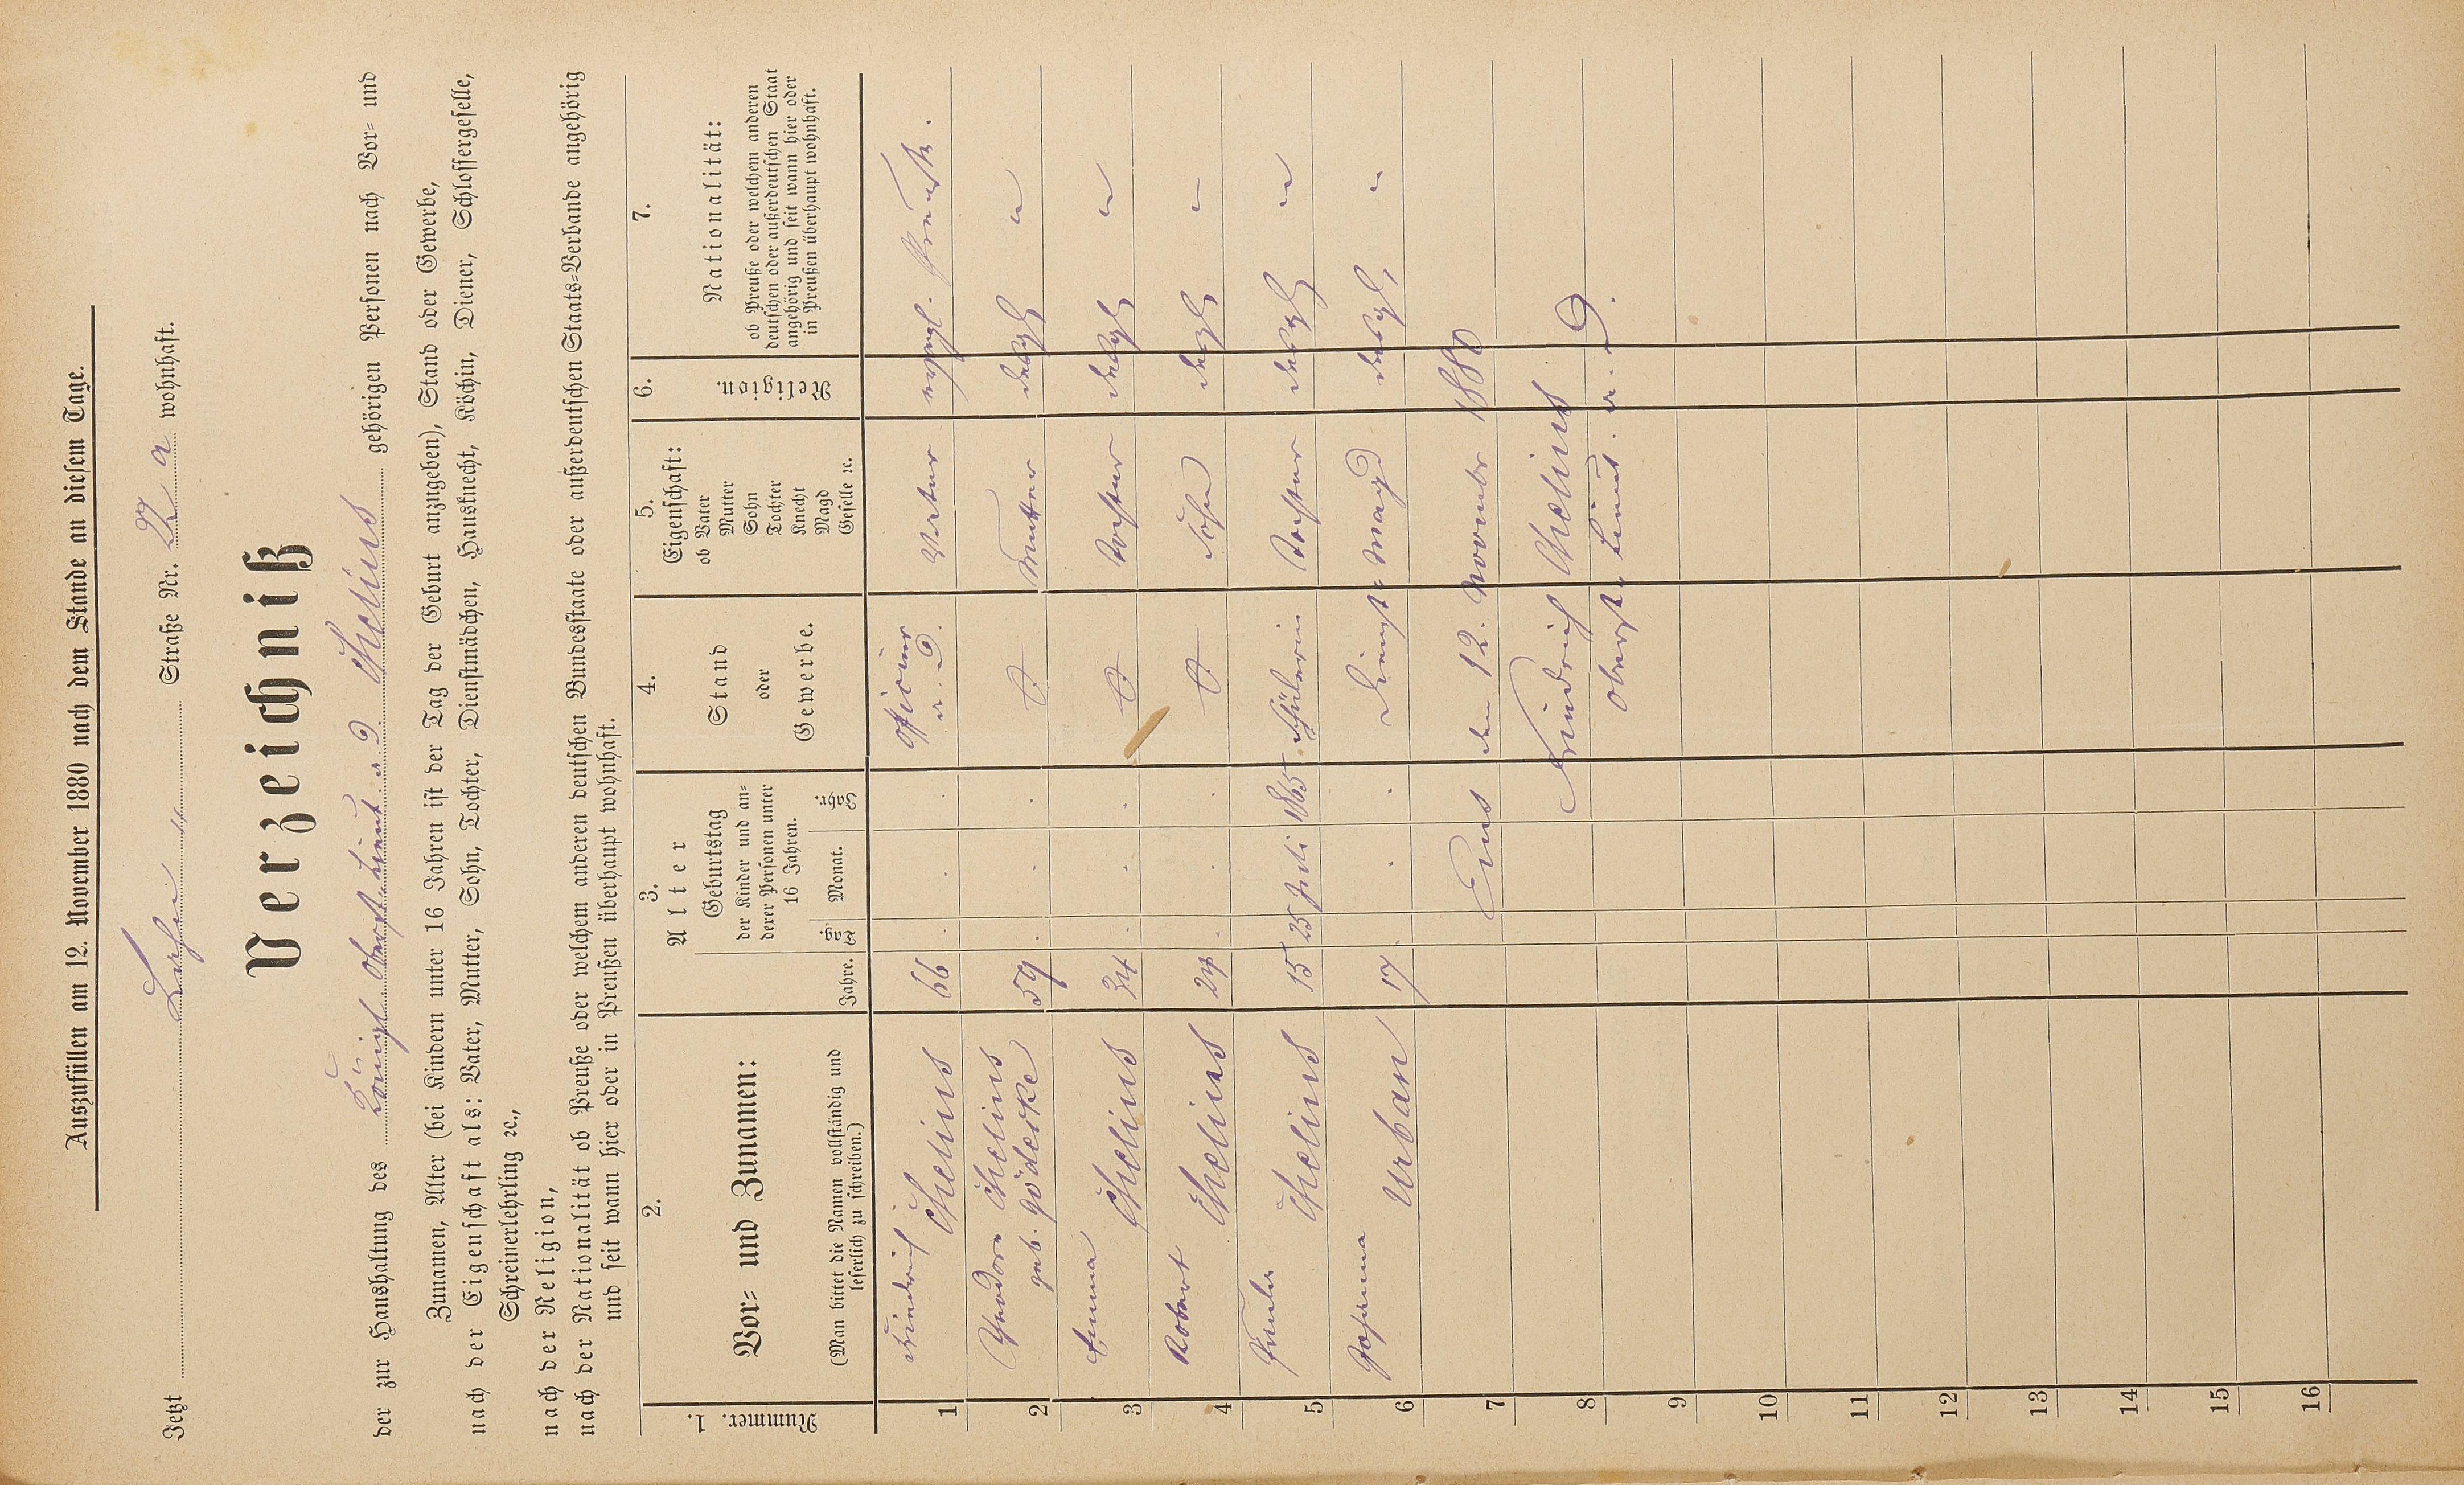 Auszufüllen am 12. November 1880 nach dem Stande an diesem Tage.
Jetzt Straße Nr. 22 a wohnhaft.
Verzeichniß
der zur Haushaltung des Königl. Oberst-Lieut a. D. Chelius gehörigen Personen nach Vor- und
Zunamen, Alter (bei Kindern unter 16 Jahren ist der Tag der Geburt anzugeben), Stand oder Gewerbe,
nach der Eigenschaft als: Vater, Mutter, Sohn, Tochter, Dienstmädchen, Hausknecht, Köchin, Diener, Schlossergeselle,
Schreinerlehrling ꝛc.,
nach der Religion,
nach der Nationalität ob Preuße oder welchem anderen deutschen Bundesstaate oder außerdeutschen Staats-Verbande angehörig
und seit wann hier oder in Preußen überhaupt wohnhaft.
1.
Nummer.
2.
Vor- und Zunamen:
(Man bittet die Namen vollständig und
leserlich zu schreiben.)
3.
Alter
Jahre.
Geburtstag
der Kinder und an-
derer Personen unter
16 Jahren.
Tag.
Monat.
Jahr.
4.
Stand
oder
Gewerbe.
5.
Eigenschaft:
ob Vater
Mutter
Sohn
Tochter
Knecht
Magd
Geselle ꝛc.
6.
Religion.
7.
Nationalität:
ob Preuße oder welchem anderen
deutschen oder außerdeutschen Staat
angehörig und seit wann hier oder
in Preußen überhaupt wohnhaft.
1 Friedrich Chelius 66 Officier a. D. Vater evangl. Preuße.
2 Theodore Chelius geb. Gödecke 59 Mutter desgl "
3 Emma Chelius 34 Tochter desgl "
4 Robert Chelius 24 Sohn desgl "
5 Chelius 15 25 Juli 1865 Schülerin Tochter desgl "
6 Urban 17 Dienst- Magd desgl "
7 Ems den 12. Novembr 1880
8 Friedrich Chelius
Oberst-Lieut. a. D.
9
10
11
12
13
14
15
16